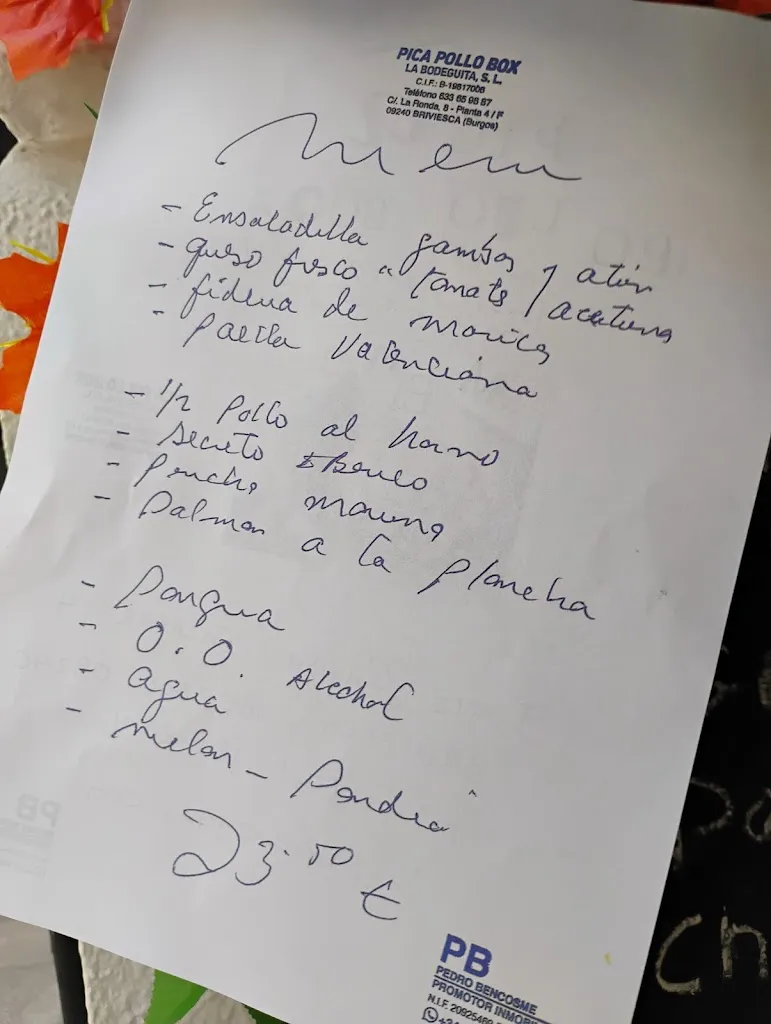 PICA POLLO BOX
LA BODEGUITA, S. L.
C.I.F.: B-19817006
Teléfono 633 65 98 87
C/. La Ronda, 8 - Planta 4 / F
09240 BRIVIESCA (Burgos)
Menu
- Ensaladilla gambas y atún
- queso fresco " tomate / aceituna
- fideua de marisco
- paella Valenciana
- 1/2 Pollo al horno
- Secreto Iberico
- Pincho moruno
- Salmon a la plancha
- Sangria
- 0.0. Alcohol
- agua
- melon - Sandia
23.50 €
PB
PEDRO BENCOSME
PROMOTOR INMOB
N.I.F. 20925
ch